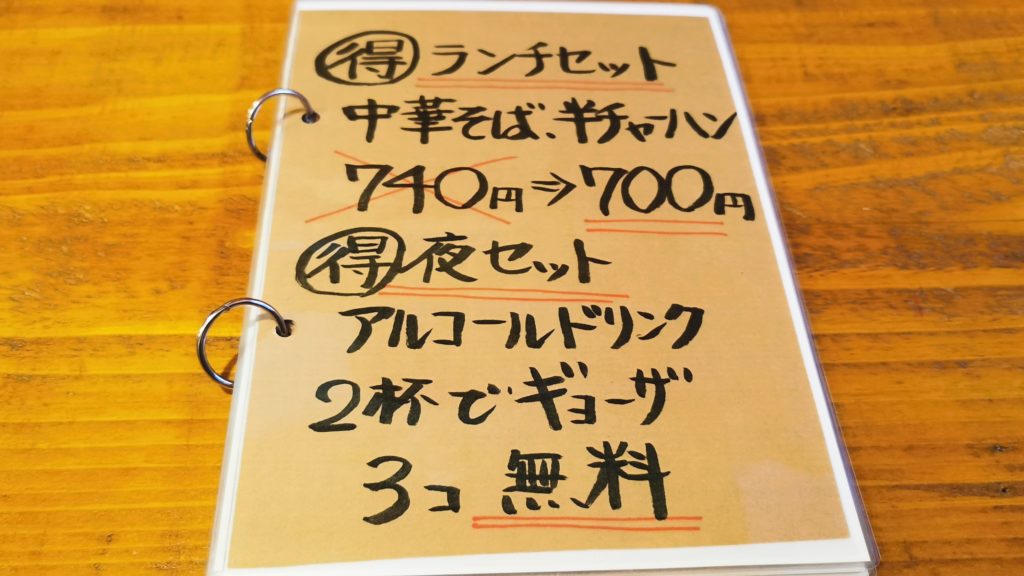 得 ランチセット
中華そば、半チャーハン
740円⇒700円
得 夜セット
アルコールドリンク
2杯でギョーザ
3コ 無料